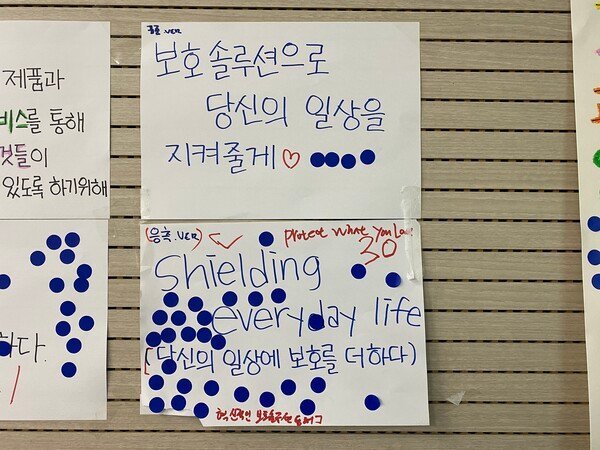 제품과
비스를 통해
것들이
있도록 하기위해
하다.
1
.VER
보호 솔루션으로
당신의 일상을
지켜줄게 ♡
(응축.VER)
protect what you Lov
30
Shielding
everyday life
(당신의 일상에 보호를 더하다)